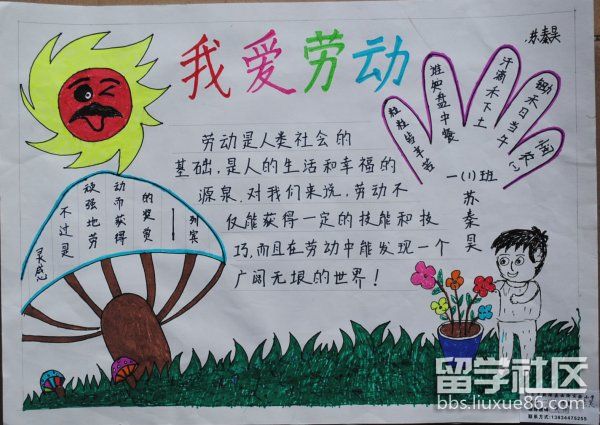 我爱劳动
苏秦昊
劳动是人类社会的
基础,是人的生活和幸福的
源泉.对我们来说,劳动不
仅能获得一定的技能和技
巧,而且在劳动中能发现一个
广阔无垠的世界!
悯农(二)
锄禾日当午
汗滴禾下土
谁知盘中餐
粒粒皆辛苦
一(1)班
苏秦昊
灵感
不过是
顽强地劳
动而获得
的奖赏
——列宾
留学社区
bbs.liuxue86.com
联系方式:13634475255